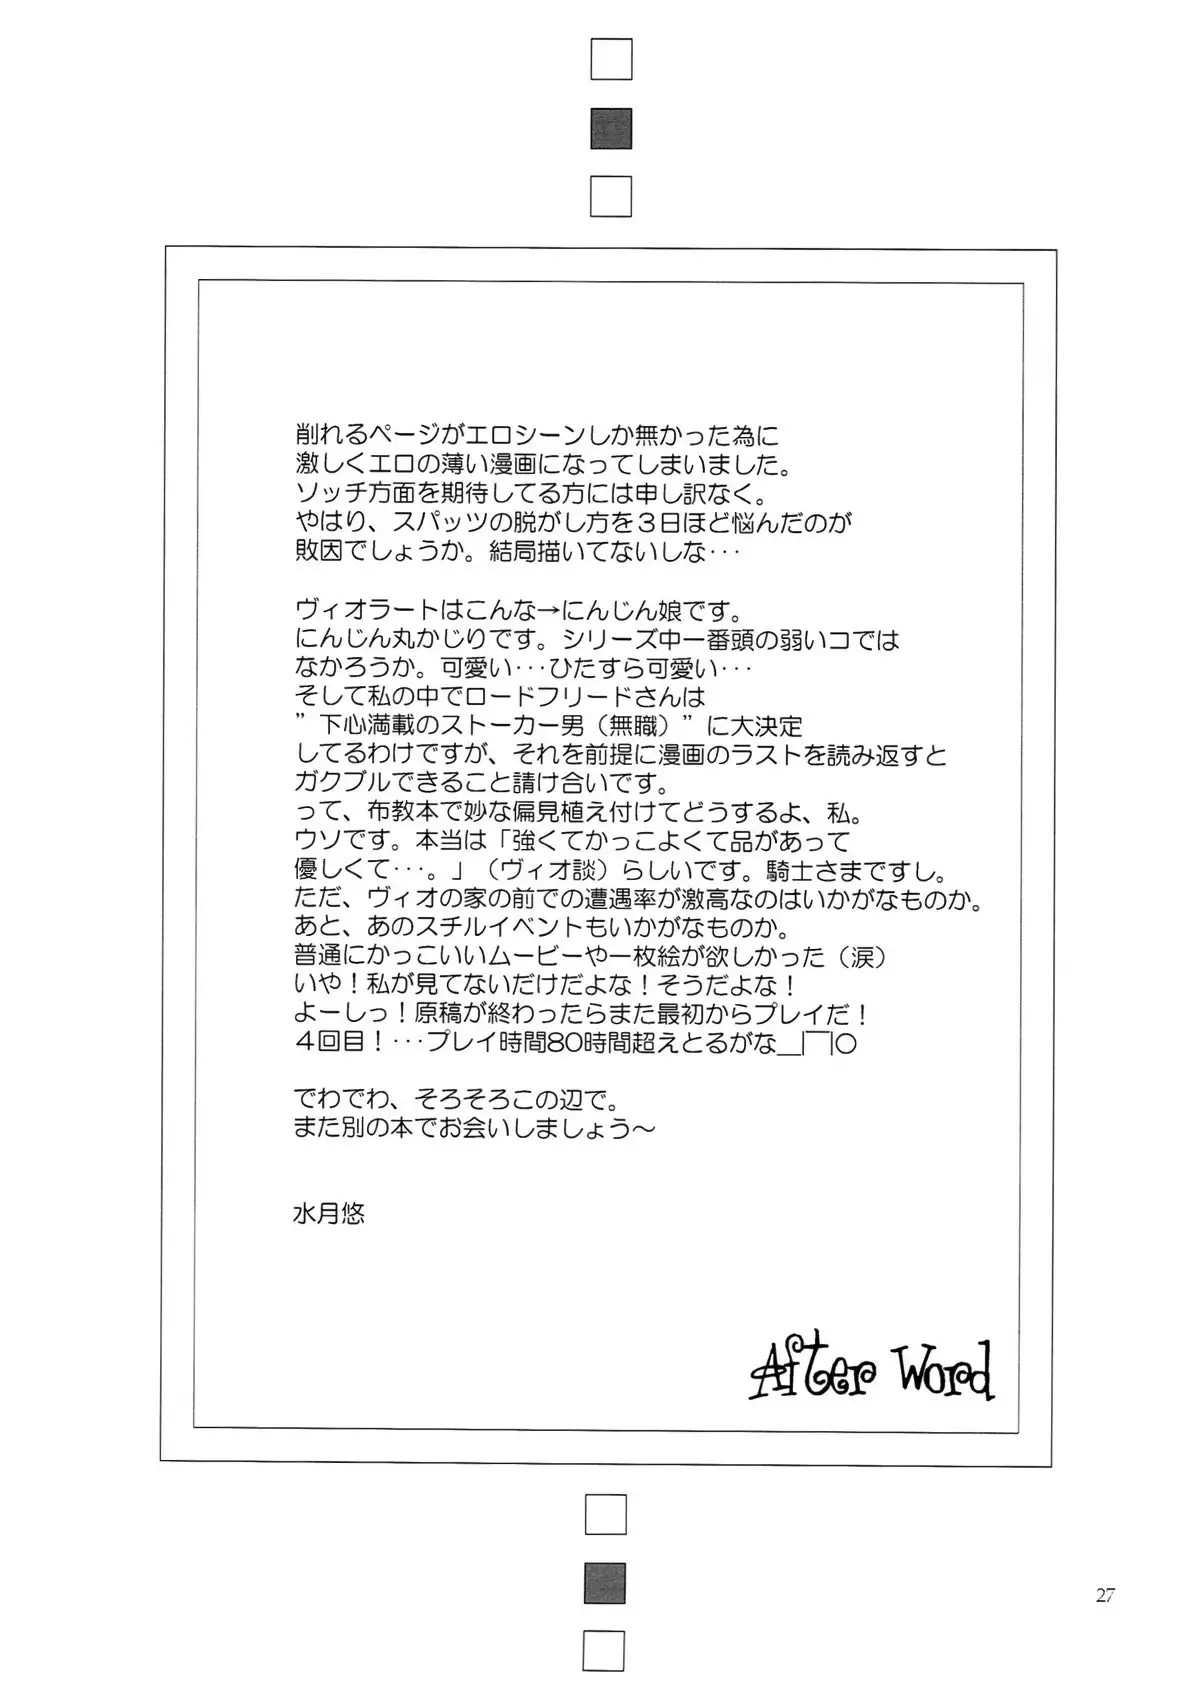 削れるページがエロシーンしか無かった為に
激しくエロの薄い漫画になってしまいました。
ソッチ方面を期待してる方には申し訳なく。
やはり、スパッツの脱がし方を３日ほど悩んだのが
敗因でしょうか。結局描いてないしな･･･
ヴィオラートはこんな→にんじん娘です。
にんじん丸かじりです。シリーズ中一番頭の弱いコでは
なかろうか。可愛い･･･ひたすら可愛い･･･
そして私の中でロードフリードさんは
”下心満載のストーカー男（無職）”に大決定
してるわけですが、それを前提に漫画のラストを読み返すと
ガクブルできること請け合いです。
って、布教本で妙な偏見植え付けてどうするよ、私。
ウソです。本当は「強くてかっこよくて品があって
優しくて･･･。」（ヴィオ談）らしいです。騎士さまですし。
ただ、ヴィオの家の前での遭遇率が激高なのはいかがなものか。
あと、あのスチルイベントもいかがなものか。
普通にかっこいいムービーや一枚絵が欲しかった（涙）
いや！私が見てないだけだよな！そうだよな！
よーしっ！原稿が終わったらまた最初からプレイだ！
４回目！･･･プレイ時間80時間超えとるがな＿|￣|○
でわでわ、そろそろこの辺で。
また別の本でお会いしましょう～
水月悠
After Word
27